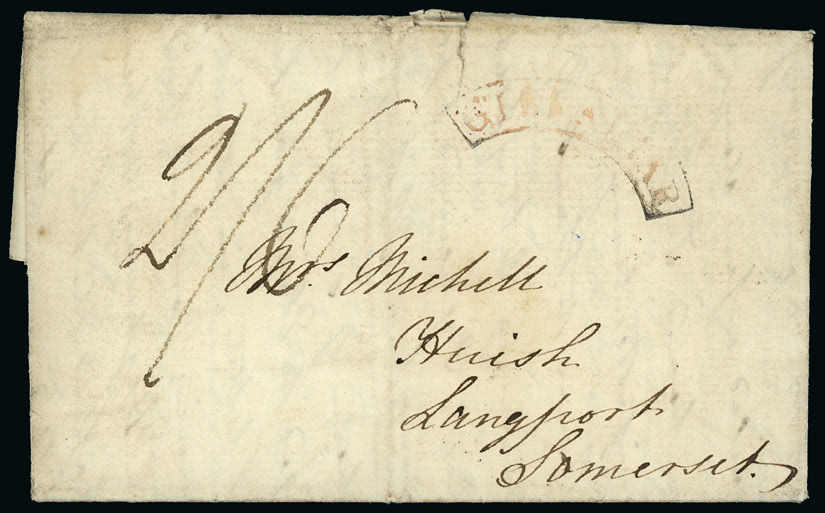 GIBRALTAR
2/6
Mrs. Michell
Huish
Langport
Somerset.